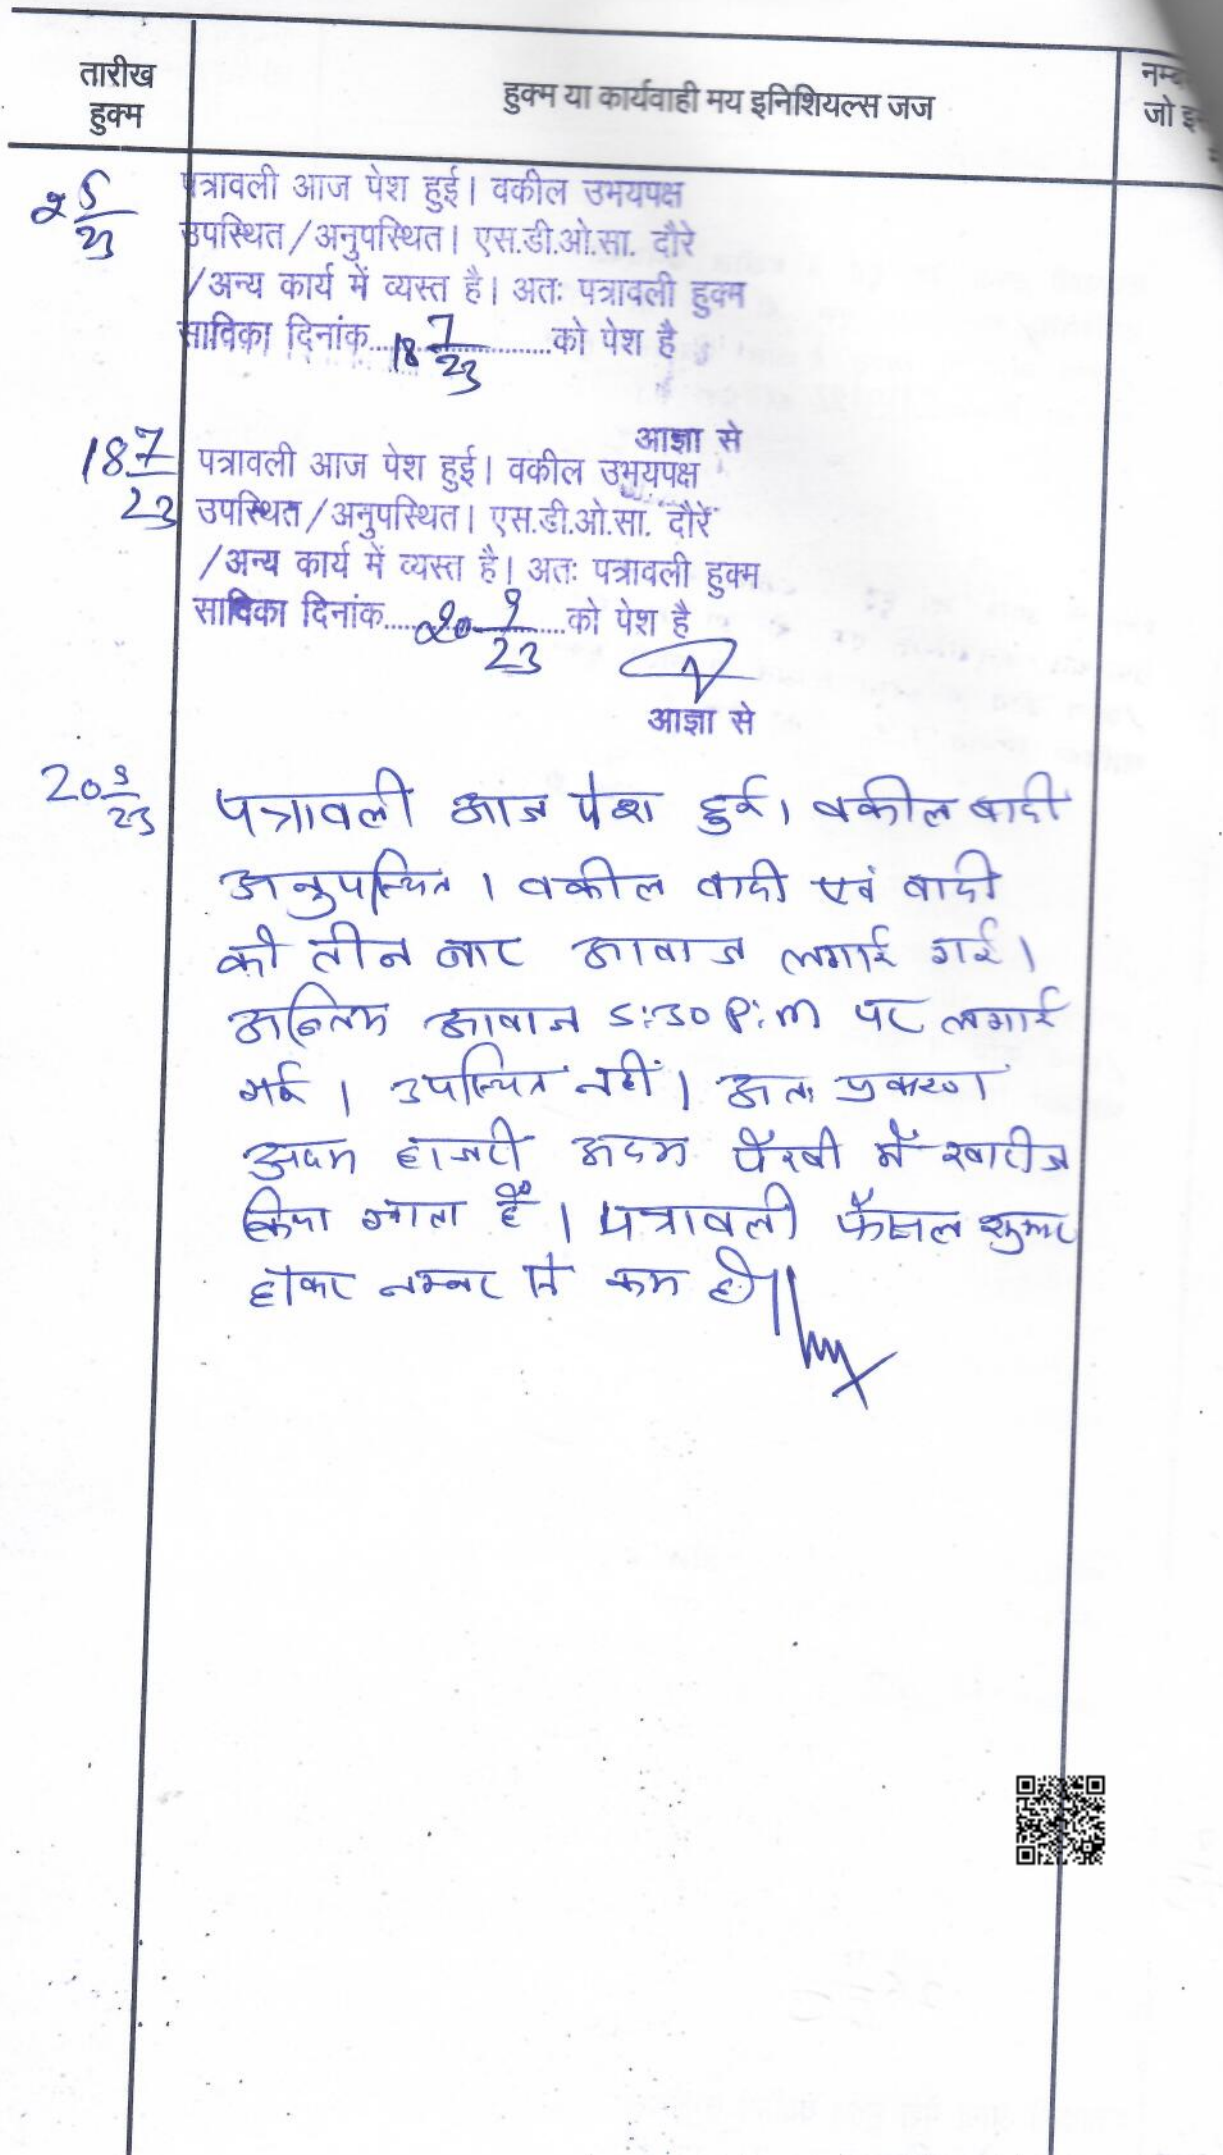 तारीख
हुक्म
हुक्म या कार्यवाही मय इनिशियल्स जज
नम्ब
जो इ
2 5/23
पत्रावली आज पेश हुई। वकील उभयपक्ष
उपस्थित/अनुपस्थित। एस.डी.ओ.सा. दौरे
/अन्य कार्य में व्यस्त है। अतः पत्रावली हुक्म
साविका दिनांक...18 7/23...को पेश है
आज्ञा से
18 7/23
पत्रावली आज पेश हुई। वकील उभयपक्ष
उपस्थित/अनुपस्थित। एस.डी.ओ.सा. दौरे
/अन्य कार्य में व्यस्त है। अतः पत्रावली हुक्म
साविका दिनांक...20 9/23...को पेश है
आज्ञा से
20 9/23
पत्रावली आज पेश हुई। वकील वादी
अनुपस्थित। वकील वादी एवं वादी
को तीन बार आवाज लगाई गई।
अन्तिम आवाज 5:30 P:m पर लगाई
गई। उपस्थित नहीं। अतः प्रकरण
अदम हाजरी अदम पैरवी में खारीज
किया जाता है। पत्रावली फैसल शुमार
होकर नम्बर से कम हो।